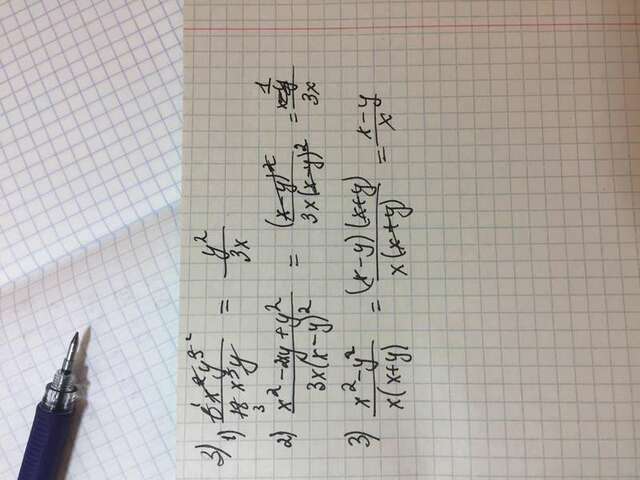 3)
1) 6x²y³ / 18x³y = y² / 3x
2) x² - 2xy + y² / 3x(x-y)² = (x-y)² / 3x(x-y)² = 1 / 3x
3) x² - y² / x(x+y) = (x-y)(x+y) / x(x+y) = x-y / x